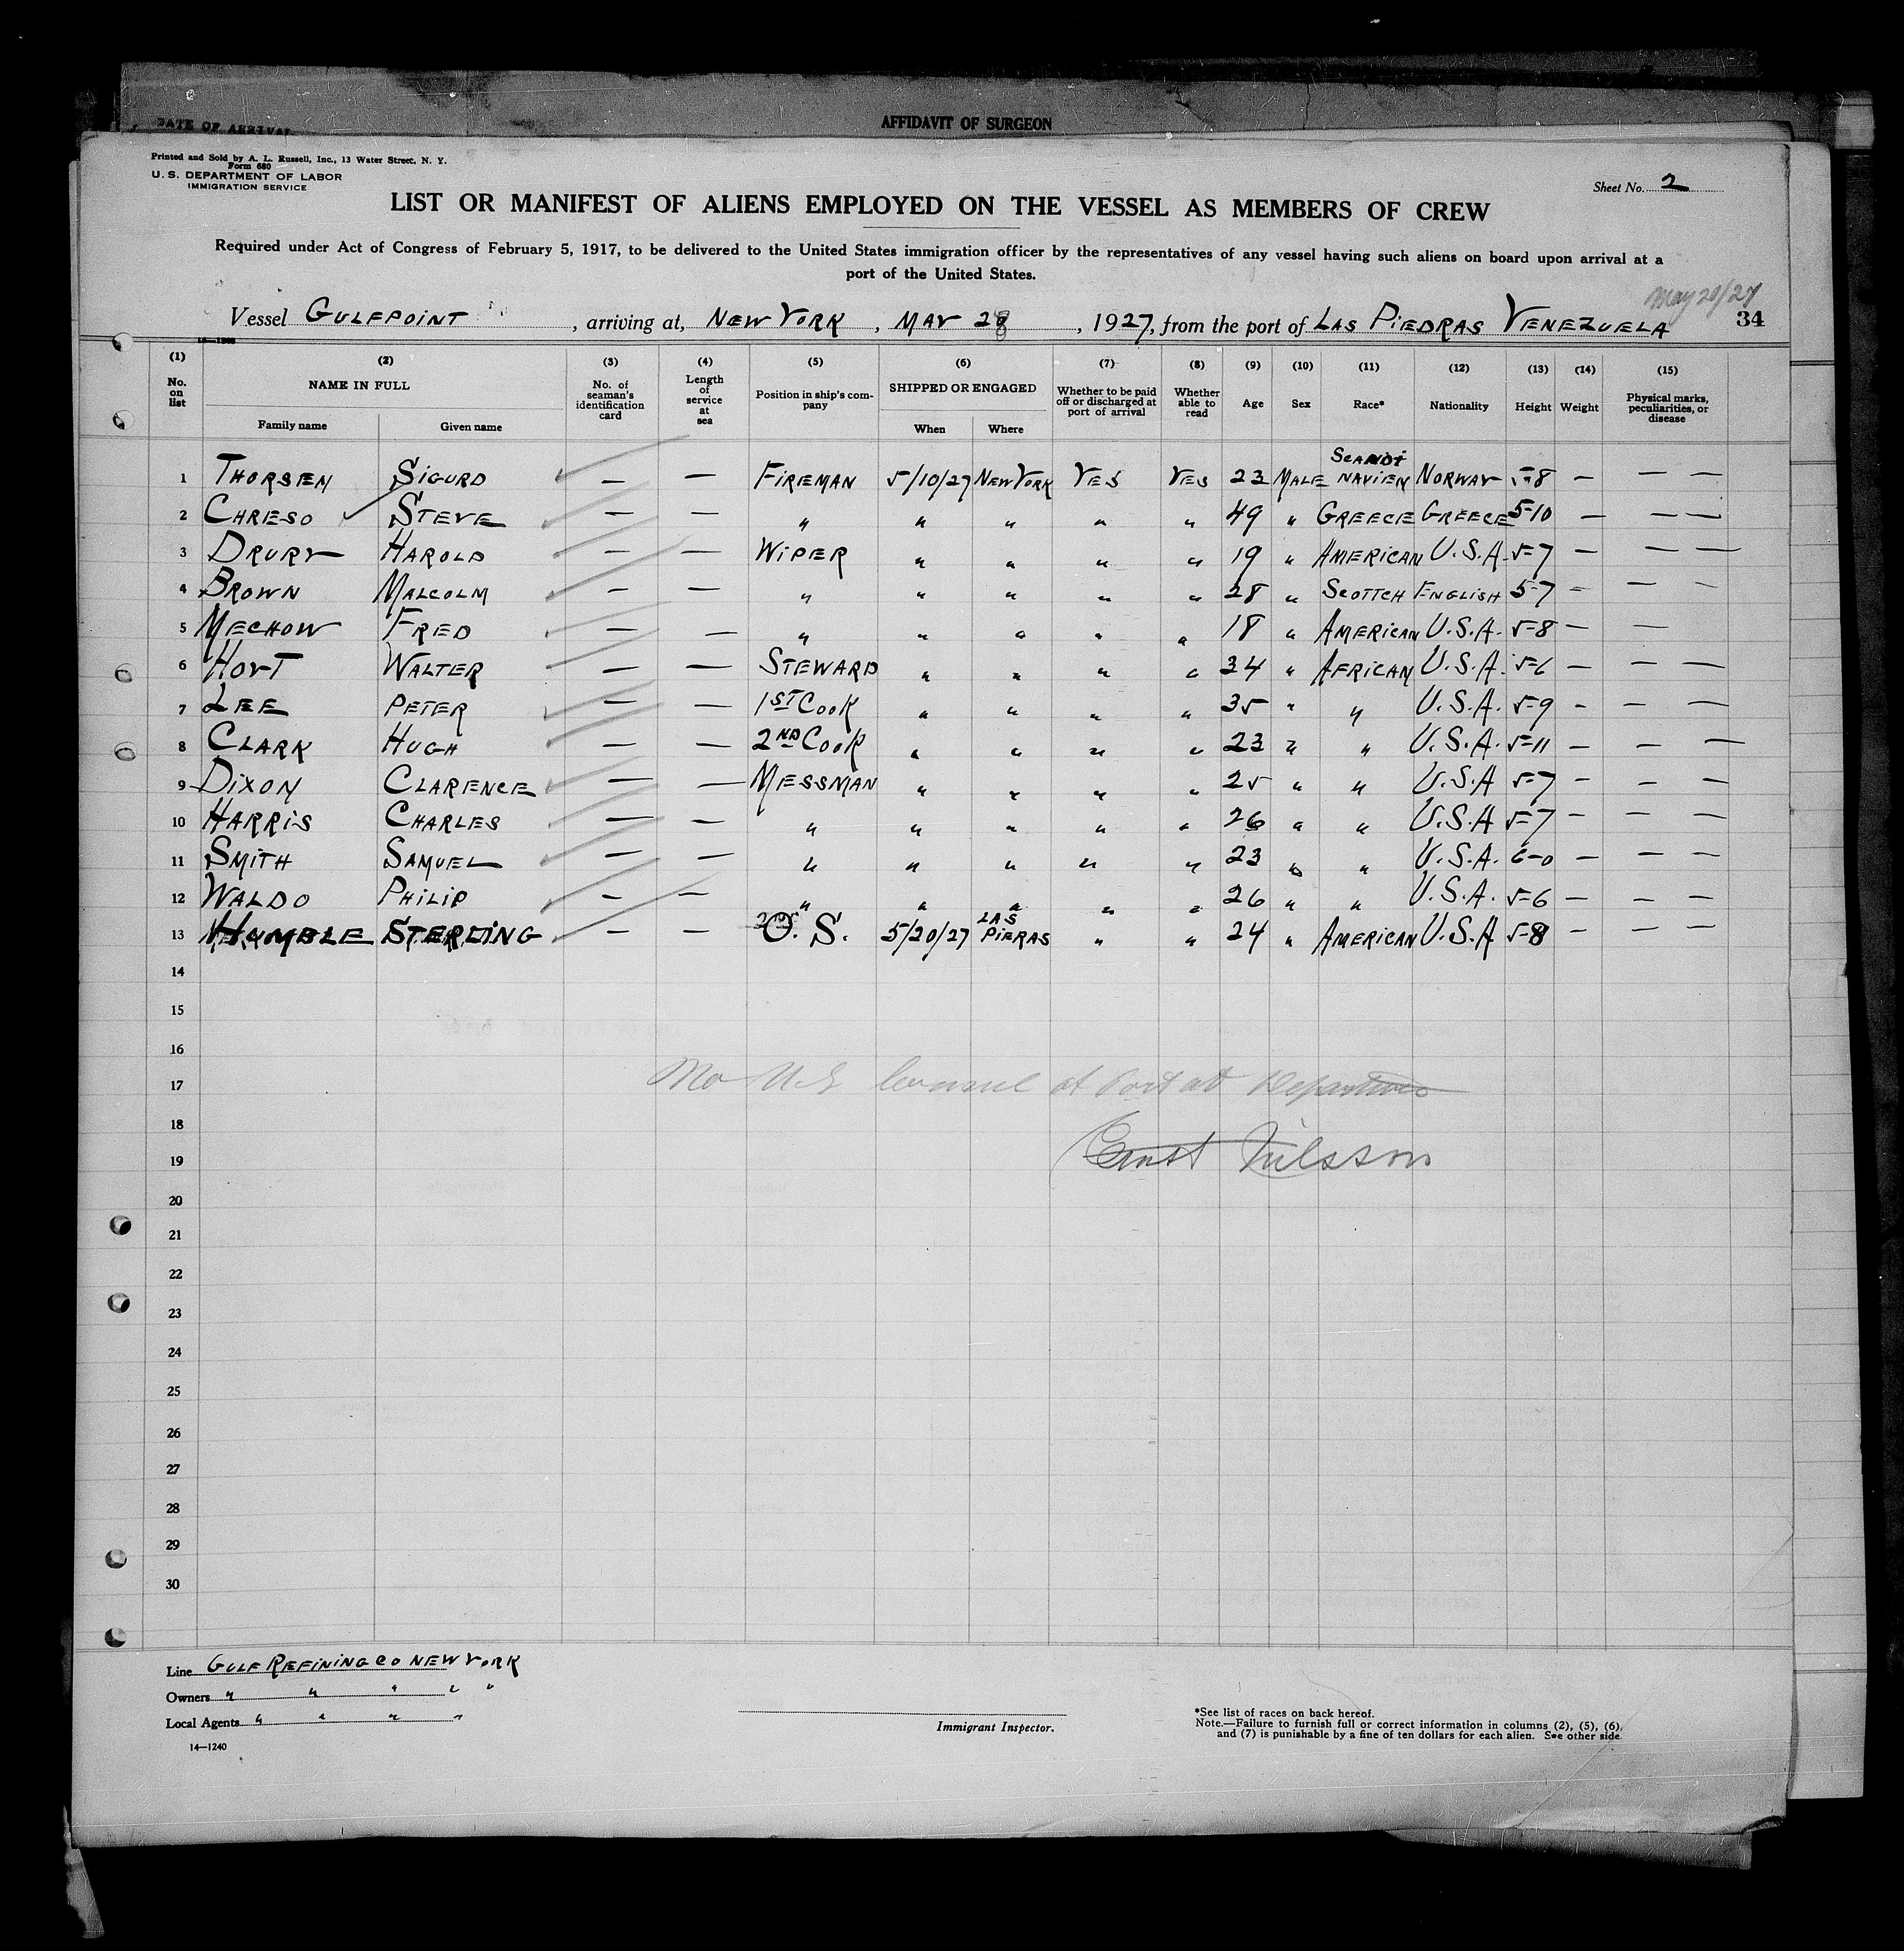 DATE OF ARRIVAL
AFFIDAVIT OF SURGEON
Printed and Sold by A. L. Russell, Inc., 13 Water Street, N. Y.
Form 680
U. S. DEPARTMENT OF LABOR
IMMIGRATION SERVICE
Sheet No. 2
LIST OR MANIFEST OF ALIENS EMPLOYED ON THE VESSEL AS MEMBERS OF CREW
Required under Act of Congress of February 5, 1917, to be delivered to the United States immigration officer by the representatives of any vessel having such aliens on board upon arrival at a
port of the United States.
May 20/27
Vessel GULFPOINT, arriving at, NEW YORK, MAY 28, 1927, from the port of LAS PIEDRAS VENEZUELA 34
(1) (2) (3) (4) (5) (6) (7) (8) (9) (10) (11) (12) (13) (14) (15)
No. on list NAME IN FULL Family name Given name No. of seaman's identification card Length of service at sea Position in ship's company SHIPPED OR ENGAGED When Where Whether to be paid off or discharged at port of arrival Whether able to read Age Sex Race* Nationality Height Weight Physical marks, peculiarities, or disease
1 THORSEN SIGURD — — FIREMAN 5/10/27 NEW YORK YES YES 23 MALE SCANDINAVIEN NORWAY 5-8 — — —
2 CHRESO STEVE — — " " " " " 49 " GREECE GREECE 5-10 — — —
3 DRURY HAROLD — — WIPER " " " " 19 " AMERICAN U.S.A. 5-7 — — —
4 BROWN MALCOLM — — " " " " " 28 " SCOTTCH ENGLISH 5-7 — — —
5 MECHOW FRED — — " " " " " 18 " AMERICAN U.S.A. 5-8 — —
6 HOYT WALTER — — STEWARD " " " " 34 " AFRICAN U.S.A. 5-6 — — —
7 LEE PETER — — 1ST COOK " " " " 35 " " U.S.A. 5-9 — — —
8 CLARK HUGH — — 2ND COOK " " " " 23 " " U.S.A. 5-11 — — —
9 DIXON CLARENCE — — MESSMAN " " " " 25 " " U.S.A 5-7 — — —
10 HARRIS CHARLES — — " " " " " 26 " " U.S.A 5-7 — — —
11 SMITH SAMUEL — — " " " " " 23 " " U.S.A. 6-0 — — —
12 WALDO PHILIP — — " " " " " 26 " " U.S.A. 5-6 — — —
13 HUMBLE STERLING — — O. S. 5/20/27 LAS PIERAS " " 24 " AMERICAN U.S.A 5-8 — — —
14
15
16
17 No U.S. Counsel at Port at Departure
18
19 Ernst Nilsson
20
21
22
23
24
25
26
27
28
29
30
Line GULF REFINING CO NEW YORK
Owners " " " " "
Local Agents " " " "
14—1240
Immigrant Inspector.
*See list of races on back hereof.
Note.—Failure to furnish full or correct information in columns (2), (5), (6),
and (7) is punishable by a fine of ten dollars for each alien. See other side.